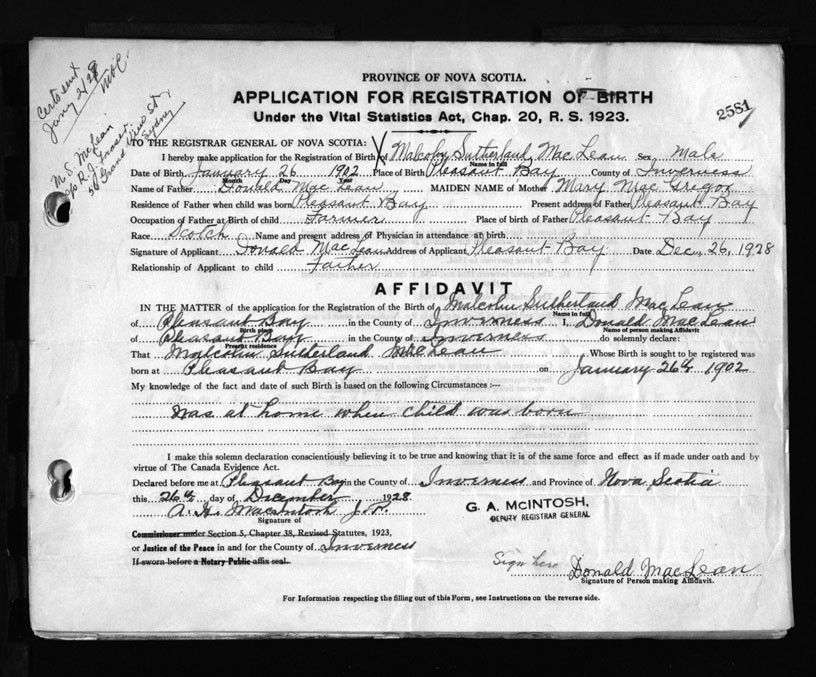 Certs sent
Jany 2/29
M.S. McLean
c/o R. J. Fraser
50 Grand View St.
Sydney
PROVINCE OF NOVA SCOTIA.
APPLICATION FOR REGISTRATION OF BIRTH
Under the Vital Statistics Act, Chap. 20, R. S. 1923.
2581
TO THE REGISTRAR GENERAL OF NOVA SCOTIA:
I hereby make application for the Registration of Birth of Malcolm Sutherland MacLean Sex Male
Name in full
Date of Birth January 26 1902 Place of Birth Pleasant Bay County of Inverness
Month Day Year
Name of Father Donald MacLean MAIDEN NAME of Mother Mary MacGregor
Residence of Father when child was born Pleasant Bay Present address of Father Pleasant Bay
Occupation of Father at Birth of child Farmer Place of birth of Father Pleasant Bay
Race Scotch Name and present address of Physician in attendance at birth
Signature of Applicant Donald MacLean Address of Applicant Pleasant Bay Date Dec 26, 1928
Relationship of Applicant to child Father
AFFIDAVIT
IN THE MATTER of the application for the Registration of the Birth of Malcolm Sutherland MacLean
Name in full
of Pleasant Bay in the County of Inverness I, Donald MacLean
Birth place Name of person making Affidavit
of Pleasant Bay in the County of Inverness do solemnly declare:
Present residence
That Malcolm Sutherland McLean Whose Birth is sought to be registered was
born at Pleasant Bay on January 26th 1902
My knowledge of the fact and date of such Birth is based on the following Circumstances :—
was at home when child was born
I make this solemn declaration conscientiously believing it to be true and knowing that it is of the same force and effect as if made under oath and by
virtue of The Canada Evidence Act.
Declared before me at Pleasant Bay in the County of Inverness and Province of Nova Scotia
this 26th day of December 1928
A. H. Macintosh J.P.
Signature of
G. A. McINTOSH,
DEPUTY REGISTRAR GENERAL
Commissioner under Section 5, Chapter 38, Revised Statutes, 1923,
or Justice of the Peace in and for the County of Inverness
If sworn before a Notary Public affix seal.
Sign here Donald MacLean
Signature of Person making Affidavit.
For Information respecting the filling out of this Form, see Instructions on the reverse side.